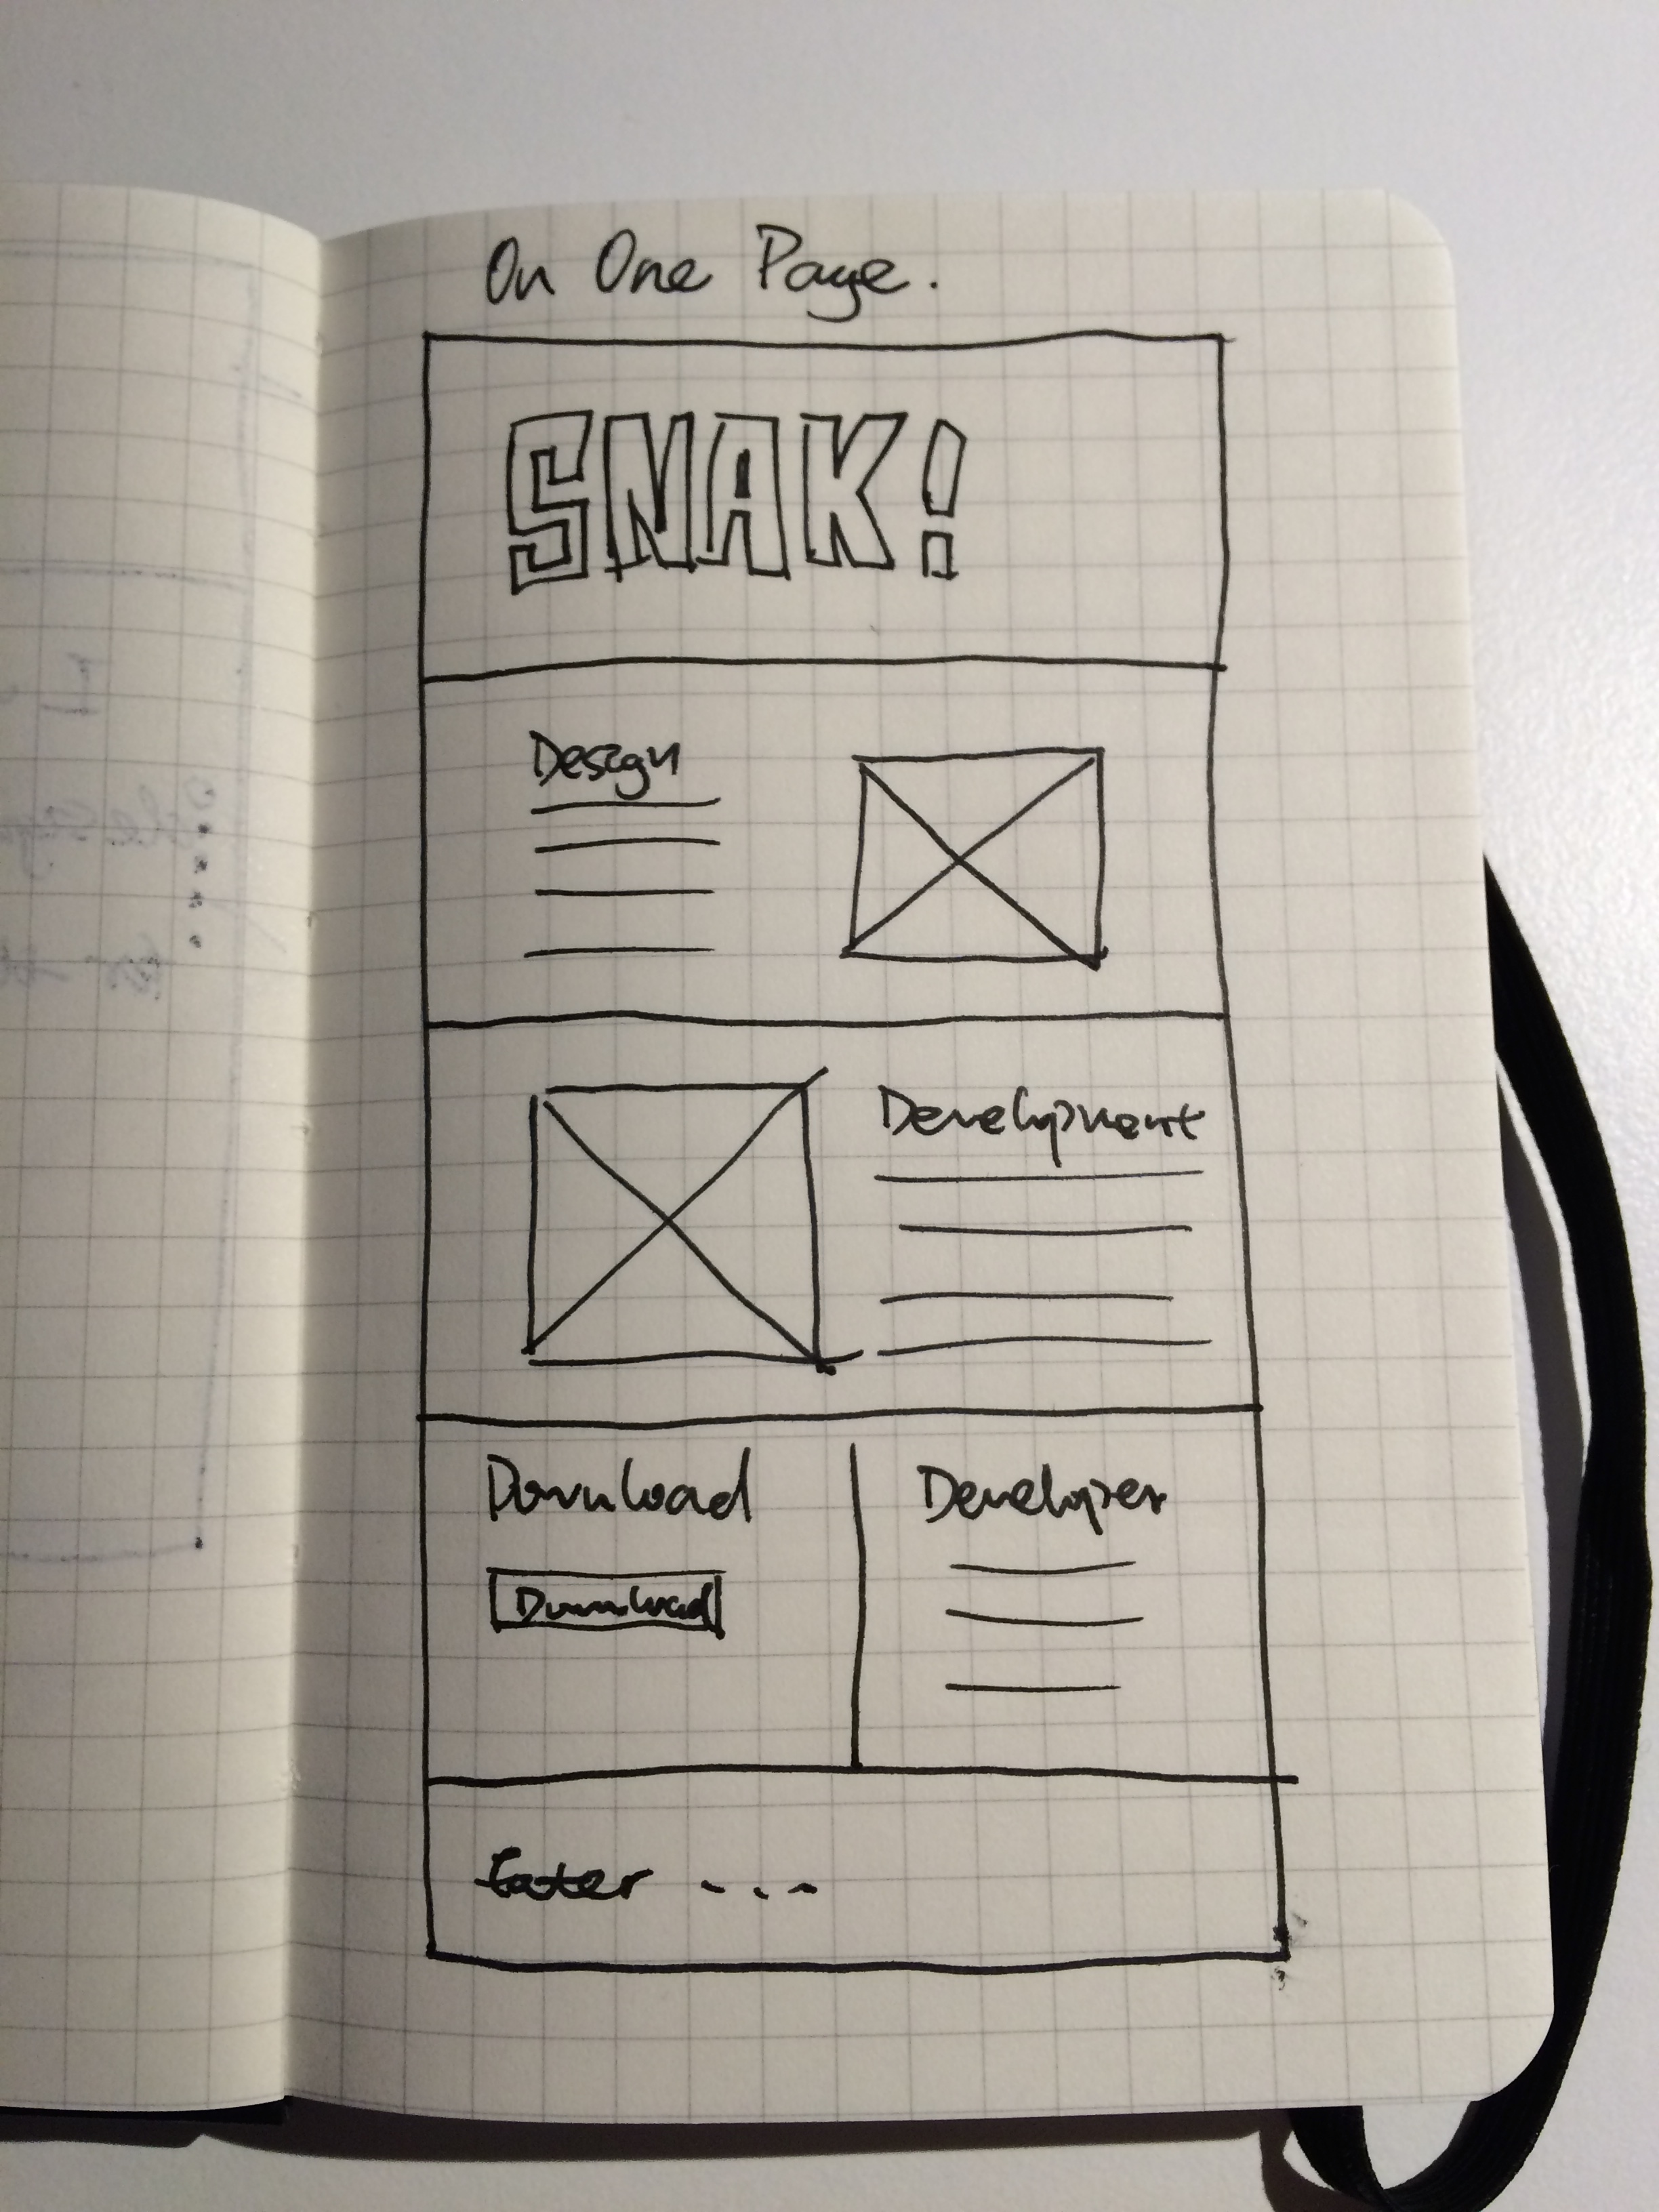 On One Page.
SNAK!
Design
Development
Download
Download
Developer
footer ...